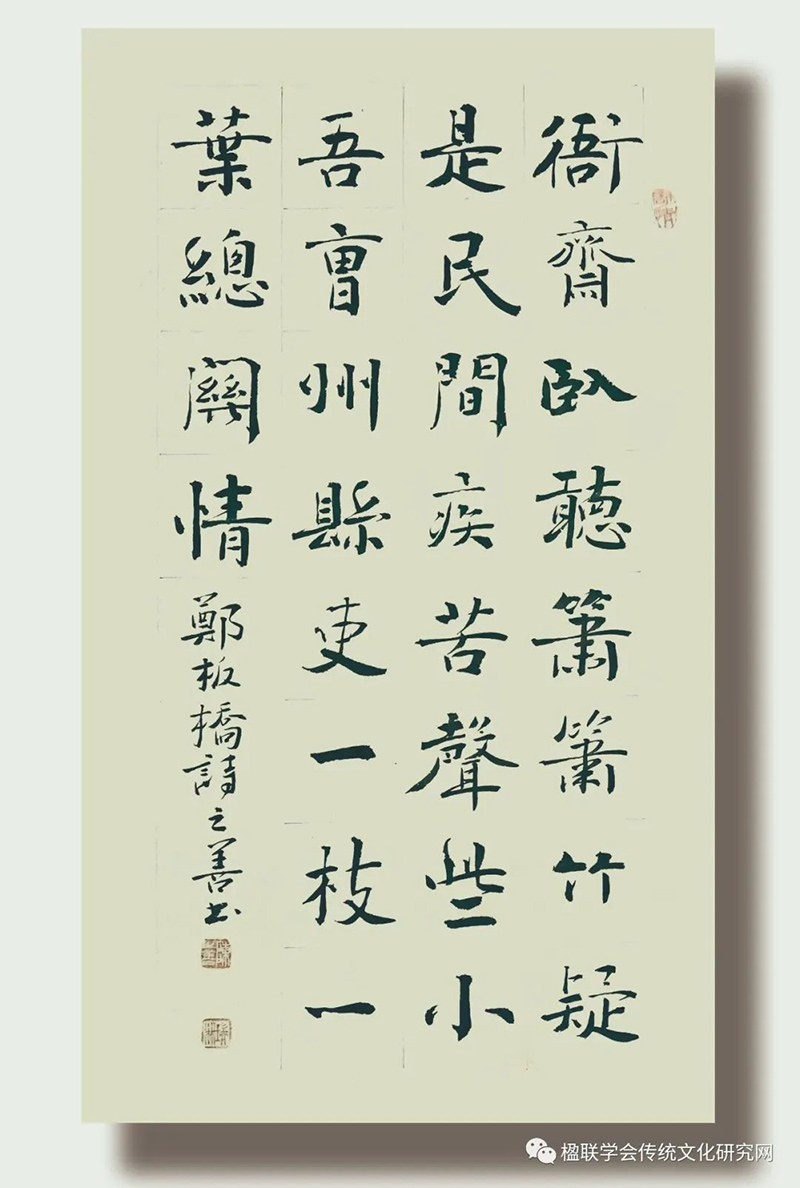 衙齋臥聽簫簫竹疑
是民間疾苦聲些小
吾曹州縣吏一枝一
葉總關情 鄭板橋詩之善書
楹联学会传统文化研究网